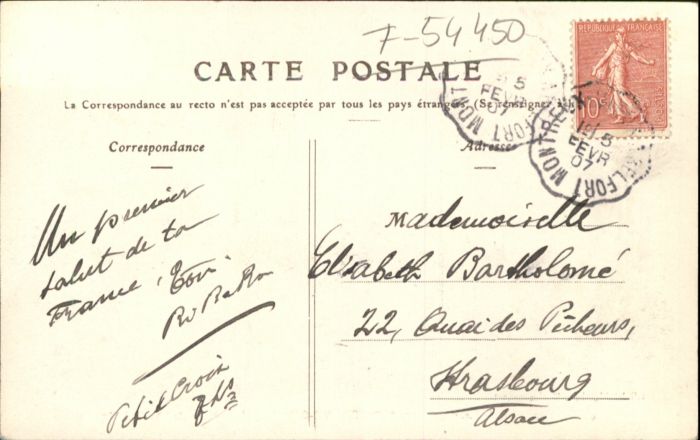 F-54450
CARTE POSTALE
La Correspondance au recto n'est pas acceptée par tous les pays étrangers (Se renseigner
Correspondance
Adresse
REPUBLIQUE FRANÇAISE
10
5
FEVR
07
BELFORT MONT
MONTREUX
BELFORT
5
FEVR
07
Un premier
salut de ta
France,
Petit Croix
Mademoiselle
Elisabeth Bartholomé
22, Quai des Pêcheurs,
Strasbourg
Alsace